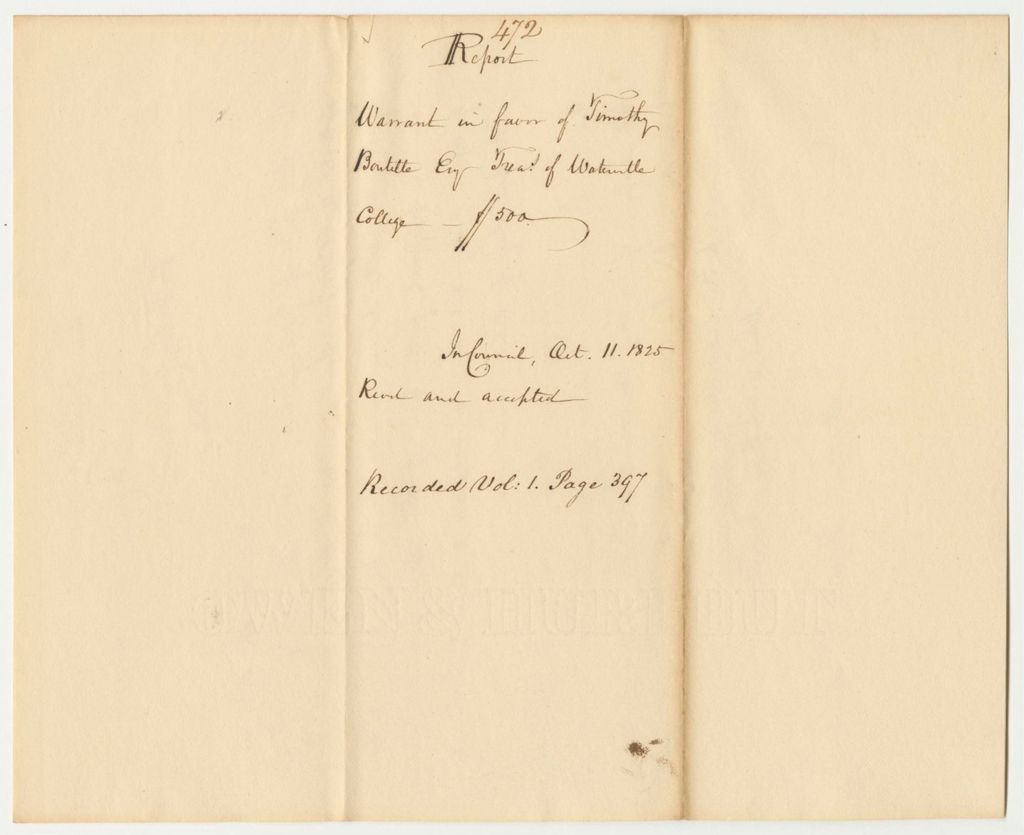 472
Report
Warrant in favor of Timothy
Boutelle Esq Treas. of Waterville
College — $500
In Council, Oct. 11. 1825
Read and accepted
Recorded Vol: 1. Page 397